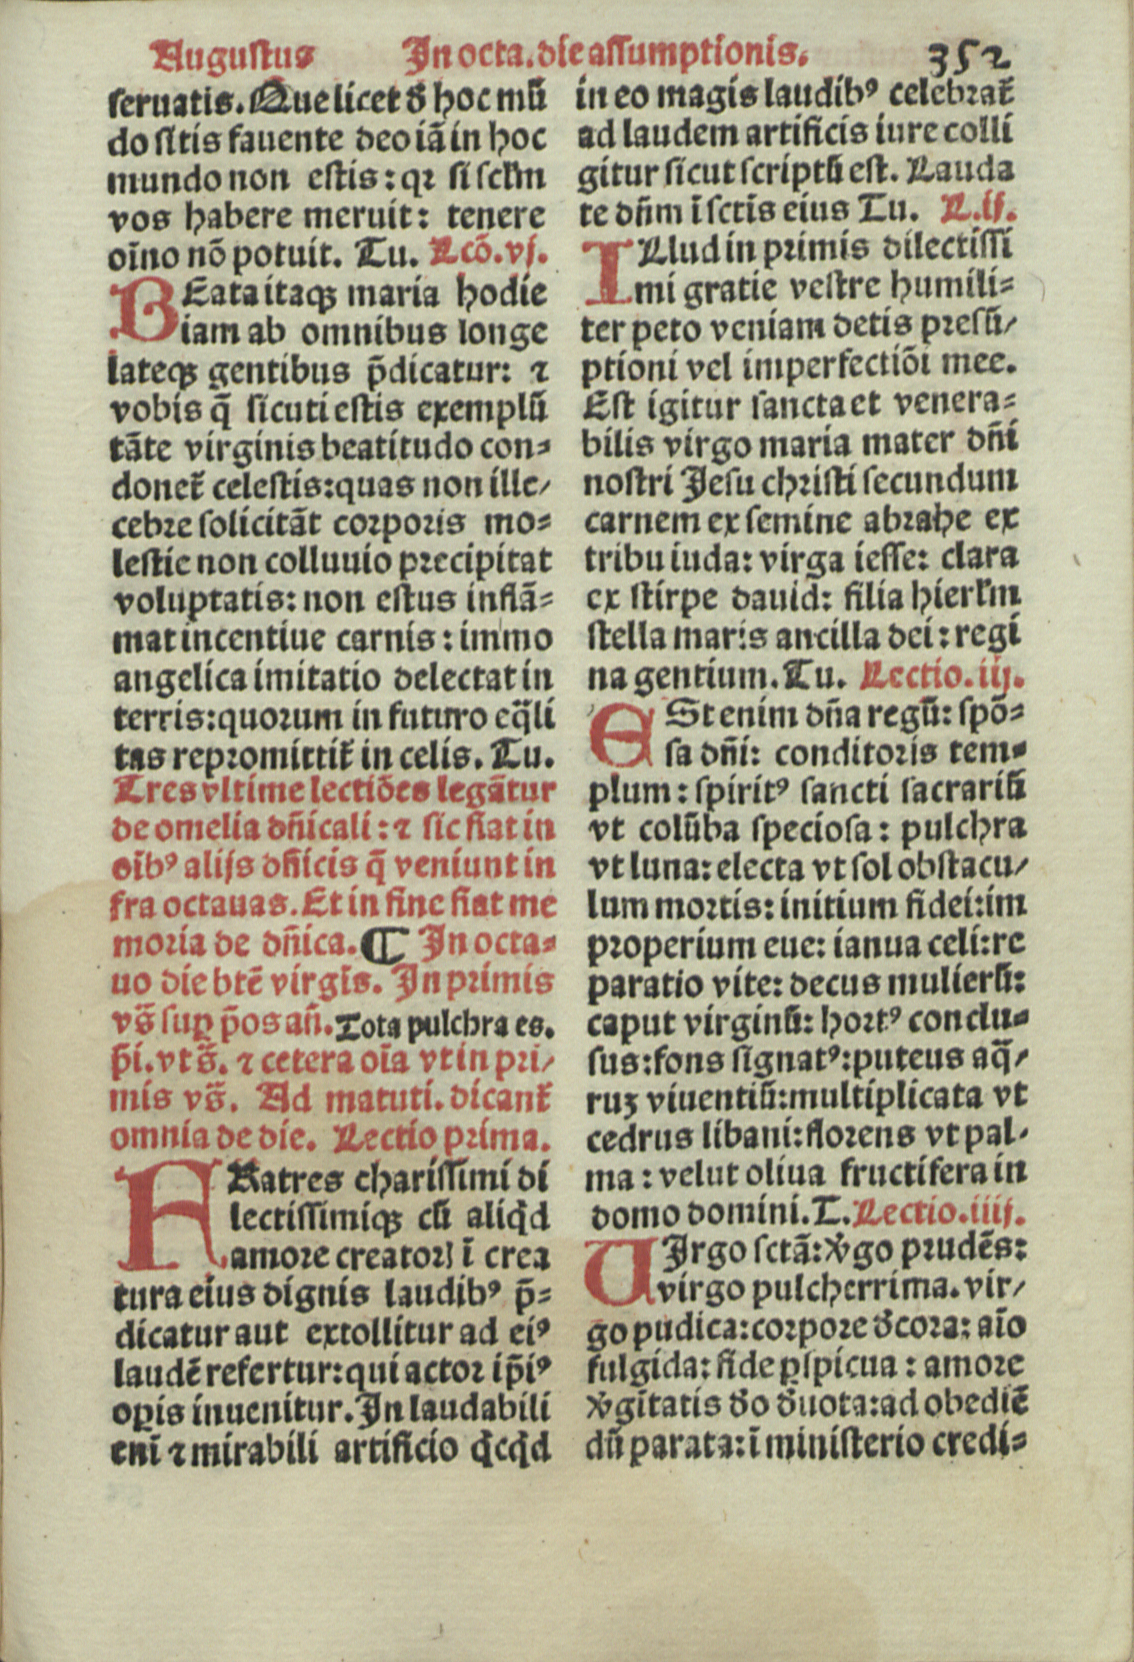 Augustus In octa. die assumptionis. 352
seruatis. Que licet d̄ hoc mū
do sitis fauente deo iā in hoc
mundo non estis: qꝛ si sclm̄
vos habere meruit: tenere
oīno nō potuit. Tu. Lcō. vj.
BEata itaqꝫ maria hodie
iam ab omnibus longe
lateqꝫ gentibus p̄dicatur: ⁊
vobis q̄ sicuti estis exemplū
tāte virginis beatitudo con-
donet̄ celestis: quas non ille/
cebre solicitāt corporis mo-
lestie non colluuio precipitat
voluptatis: non estus inflā-
mat incentiue carnis: immo
angelica imitatio delectat in
terris: quorum in futuro eq̄li
tas repromittit̄ in celis. Tu.
Tres vltime lectiōes legātur
de omelia dñicali: ⁊ sic fiat in
oīb⁹ alijs dñicis q̄ veniunt in
fra octauas. Et in fine fiat me
moria de dñica. ¶ In octa-
uo die btē virgīs. In primis
vs̄ suꝑ p̄os añ. Tota pulchra es.
p̄i. vt s̄. ⁊ cetera oīa vt in pri/
mis vs̄. Ad matuti. dicant̄
omnia de die. Lectio prima.
FRatres charissimi di
lectissimiqꝫ cū aliq̇d
amore creatorꝭ ī crea
tura eius dignis laudib⁹ p̄-
dicatur aut extollitur ad ei⁹
laudē refertur: qui actor ip̄i⁹
oꝑis inuenitur. In laudabili
enī ⁊ mirabili artificio q̇cq̇d
in eo magis laudib⁹ celebrat̄
ad laudem artificis iure colli
gitur sicut scriptū est. Lauda
te dñm ī sctīs eius Tu. L. ij.
ILlud in primis dilectissi
mi gratie vestre humili-
ter peto veniam detis presū/
ptioni vel imperfectiōi mee.
Est igitur sancta et venera-
bilis virgo maria mater dñi
nostri Jesu christi secundum
carnem ex semine abrahe ex
tribu iuda: virga iesse: clara
ex stirpe dauid: filia hierlm̄
stella maris ancilla dei: regi
na gentium. Tu. Lectio. iij.
ESt enim dña regū: spō-
sa dñi: conditoris tem-
plum: spirit⁹ sancti sacrariū
vt colūba speciosa: pulchra
vt luna: electa vt sol obstacu/
lum mortis: initium fidei: im
properium eue: ianua celi: re
paratio vite: decus mulierū:
caput virginū: hort⁹ conclu-
sus: fons signat⁹: puteus aq̄/
ruꝫ viuentiū: multiplicata vt
cedrus libani: florens vt pal-
ma: velut oliua fructifera in
domo domini. T. Lectio. iiij.
UIrgo sctā: v̄go prudēs:
virgo pulcherrima. vir/
go pudica: corpore d̄cora: aīo
fulgida: fide ꝑspicua: amore
v̄gitatis d̄o d̄uota: ad obediē
dū parata: ī ministerio credi-